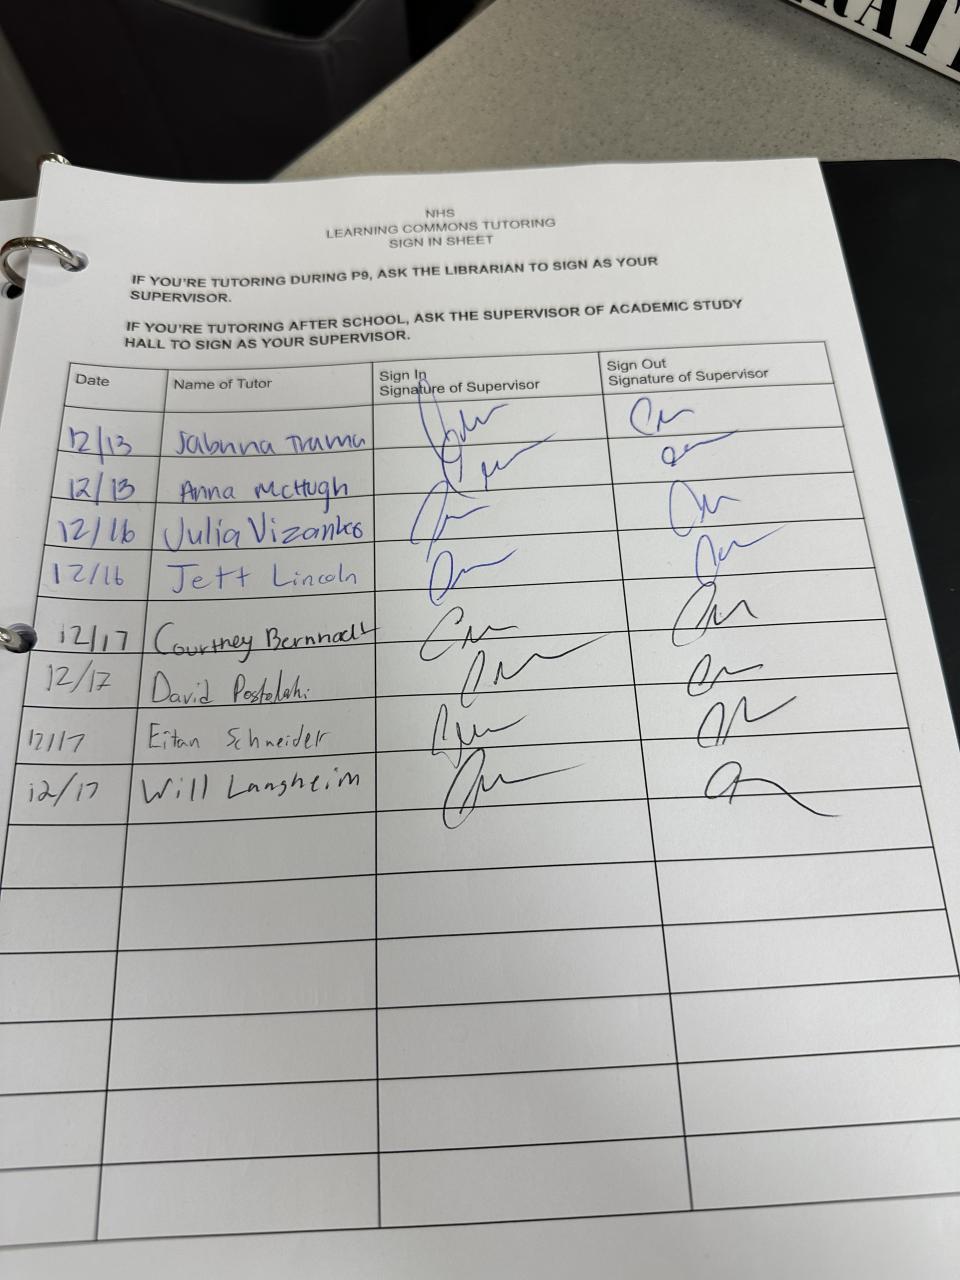 NHS
LEARNING COMMONS TUTORING
SIGN IN SHEET
IF YOU'RE TUTORING DURING P9, ASK THE LIBRARIAN TO SIGN AS YOUR
SUPERVISOR.
IF YOU'RE TUTORING AFTER SCHOOL, ASK THE SUPERVISOR OF ACADEMIC STUDY
HALL TO SIGN AS YOUR SUPERVISOR.
Date Name of Tutor Sign In Sign Out
Signature of Supervisor Signature of Supervisor
12/13 Sabrina
12/13 Anna McHugh
12/16 Julia Vizanko
12/16 Jett Lincoln
12/17 Courtney
12/17 David
12/17 Eitan Schneider
12/17 Will Langheim